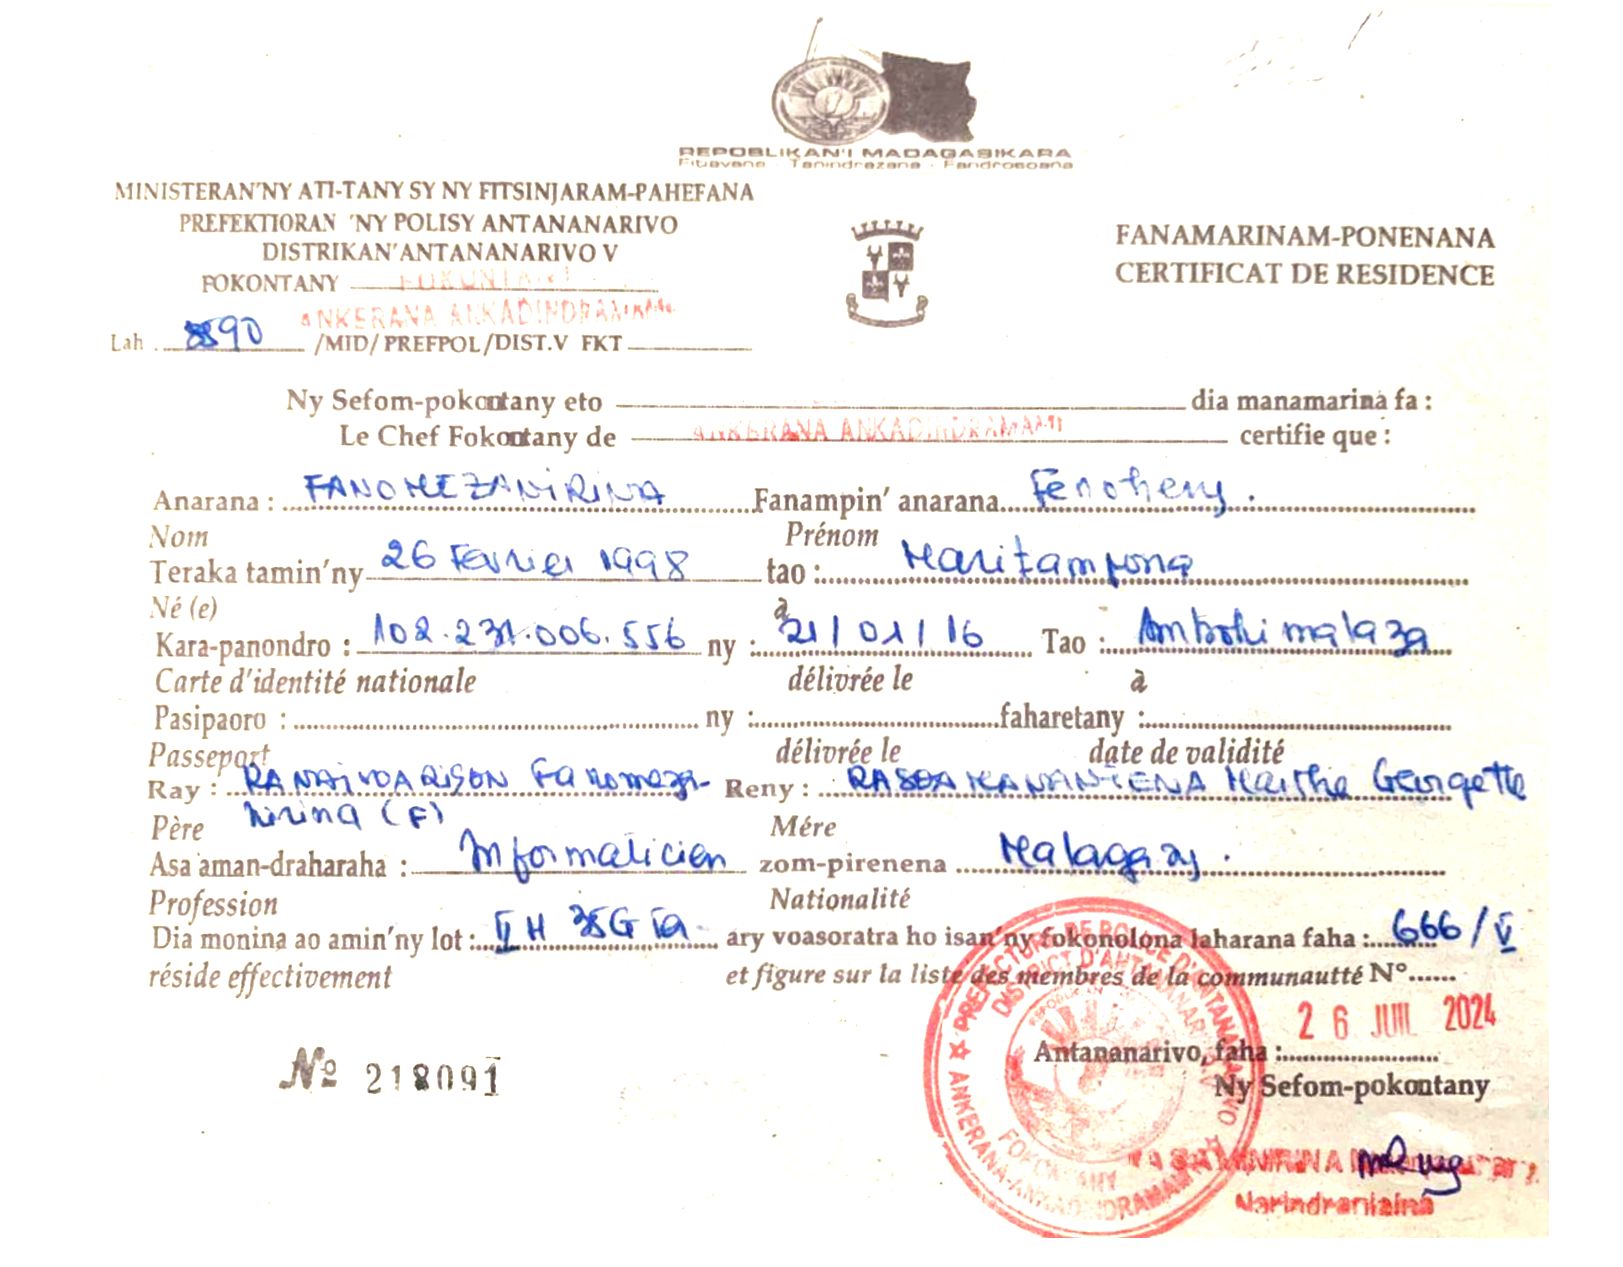 REPOBLIKAN'I MADAGASIKARA
Fitiavana - Tanindrazana - Fandrosoana
MINISTERAN'NY ATI-TANY SY NY FITSINJARAM-PAHEFANA
PREFEKTIORAN 'NY POLISY ANTANANARIVO
DISTRIKAN'ANTANANARIVO V
POKONTANY FOKONTANY
ANKERANA ANKADINDRAMAMY
Lah . 8590 /MID/ PREFPOL /DIST.V FKT
FANAMARINAM-PONENANA
CERTIFICAT DE RESIDENCE
Ny Sefom-pokontany eto dia manamarina fa :
Le Chef Fokontany de ANKERANA ANKADINDRAMAMY certifie que :
Anarana : FANOMEZANIRINA Fanampin' anarana Fenoheny .
Nom Prénom
Teraka tamin'ny 26 Fevrier 1998 tao : Maritampona
Né (e) à
Kara-panondro : 102.231.006.556 ny : 21/01/16 Tao : Ambohimalaza
Carte d'identité nationale délivrée le à
Pasipaoro : ny : faharetany :
Passeport délivrée le date de validité
Ray : RANAIVOARISON Fanomeza- Reny : RASOAMANANTENA Marthe Georgette
nirina (F)
Père Mére
Asa aman-draharaha : Informaticien zom-pirenena Malagasy .
Profession Nationalité
Dia monina ao amin'ny lot : II H ary voasoratra ho isan'ny fokonolona laharana faha : 666/V
réside effectivement et figure sur la liste des membres de la communautté N°
26 JUIL 2024
Antananarivo, faha :
Ny Sefom-pokontany
Nº 218091
PREFECTURE DE POLICE D'ANTANANARIVO
DISTRICT D'ANTANANARIVO V
FOKONTANY
ANKERANA-ANKADINDRAMAMY
Narindraniaina